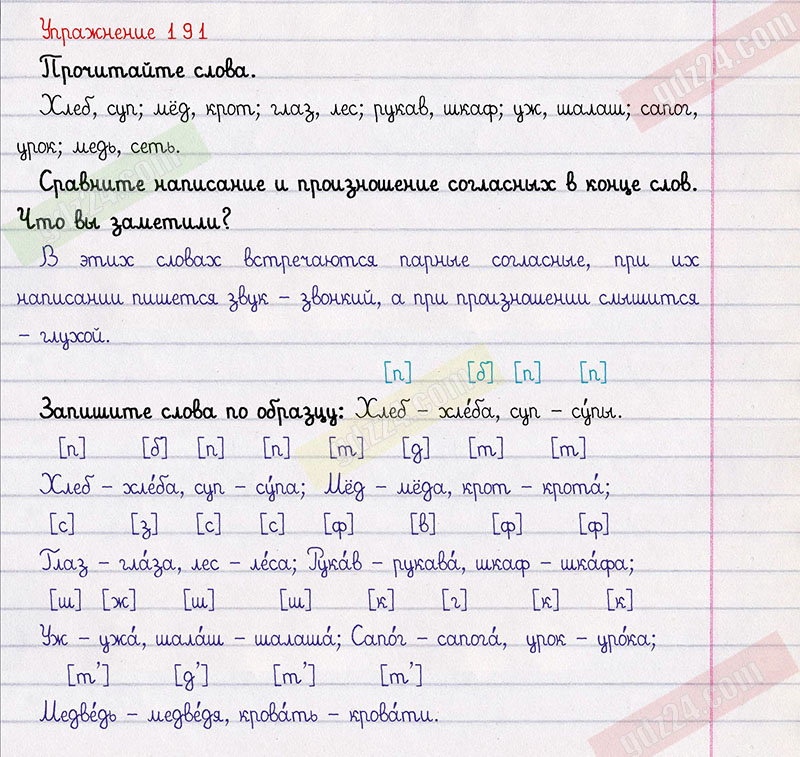 Упражнение 191
Прочитайте слова.
Хлеб, суп; мёд, крот; глаз, лес; рукав, шкаф; уж, шалаш; сапог,
урок; медь, сеть.
Сравните написание и произношение согласных в конце слов.
Что вы заметили?
В этих словах встречаются парные согласные, при их
написании пишется звук – звонкий, а при произношении слышится
– глухой.
[п] [б] [п] [п]
Запишите слова по образцу: Хлеб – хле́ба, суп – су́пы.
[п] [б] [п] [п] [т] [д] [т] [т]
Хлеб – хле́ба, суп – су́па; Мёд – мёда, крот – крота́;
[с] [з] [с] [с] [ф] [в] [ф] [ф]
Глаз – гла́за, лес – ле́са; Рука́в – рукава́, шкаф – шка́фа;
[ш] [ж] [ш] [ш] [к] [г] [к] [к]
Уж – ужа́, шала́ш – шалаша́; Сапо́г – сапога́, урок – уро́ка;
[т’] [д’] [т’] [т’]
Медве́дь – медве́дя, крова́ть – крова́ти.
gdz24.com
gdz24.com
gdz24.com
gdz24.com